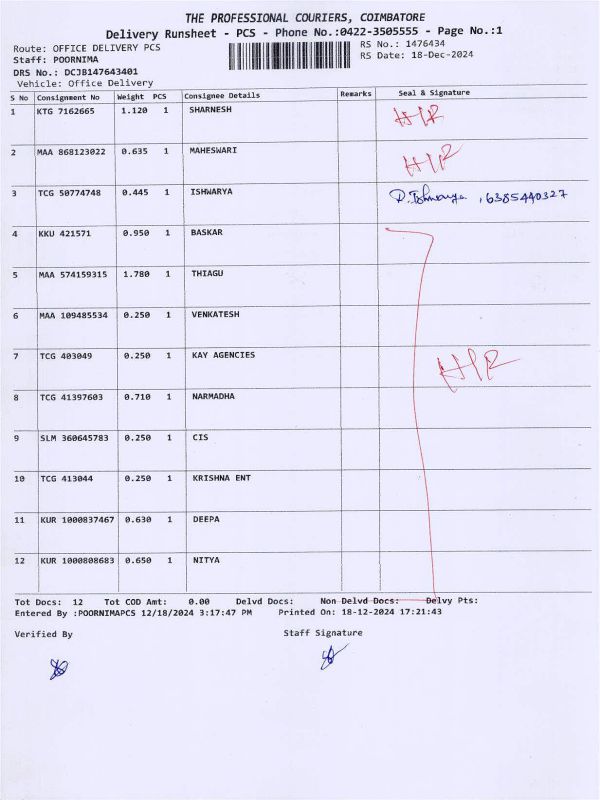 THE PROFESSIONAL COURIERS, COIMBATORE
Delivery Runsheet - PCS - Phone No.:0422-3505555 - Page No.:1
Route: OFFICE DELIVERY PCS RS No.: 1476434
Staff: POORNIMA RS Date: 18-Dec-2024
DRS No.: DCJB147643401
Vehicle: Office Delivery
S No Consignment No Weight PCS Consignee Details Remarks Seal & Signature
1 KTG 7162665 1.120 1 SHARNESH H/R
2 MAA 868123022 0.635 1 MAHESWARI H/R
3 TCG 50774748 0.445 1 ISHWARYA R. Ishwarya, 6385440327
4 KKU 421571 0.950 1 BASKAR
5 MAA 574159315 1.780 1 THIAGU
6 MAA 109485534 0.250 1 VENKATESH
7 TCG 403049 0.250 1 KAY AGENCIES H/R
8 TCG 41397603 0.710 1 NARMADHA
9 SLM 360645783 0.250 1 CIS
10 TCG 413044 0.250 1 KRISHNA ENT
11 KUR 1000837467 0.630 1 DEEPA
12 KUR 1000808683 0.650 1 NITYA
Tot Docs: 12 Tot COD Amt: 0.00 Delvd Docs: Non Delvd Docs: Delvy Pts:
Entered By :POORNIMAPCS 12/18/2024 3:17:47 PM Printed On: 18-12-2024 17:21:43
Verified By Staff Signature